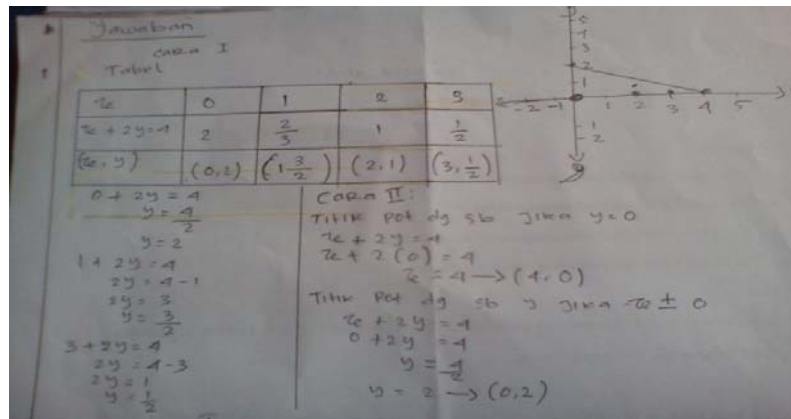 Jawaban
cara I
Tabel
x 0 1 2 3
x + 2y = 4 2 2/3 1 1/2
(x, y) (0,2) (1 3/2) (2,1) (3, 1/2)
0 + 2y = 4
y = 4/2
y = 2
1 + 2y = 4
2y = 4-1
2y = 3
y = 3/2
3 + 2y = 4
2y = 4-3
2y = 1
y = 1/2
CARA II:
Titik Pot dg sb jika y=0
x + 2y = 4
x + 2(0) = 4
x = 4 → (4,0)
Titik Pot dg sb y jika x ± 0
x + 2y = 4
0 + 2y = 4
y = 4/2
y = 2 → (0,2)
3
2
1
-2 -1 1 2 3 4 5
1
2